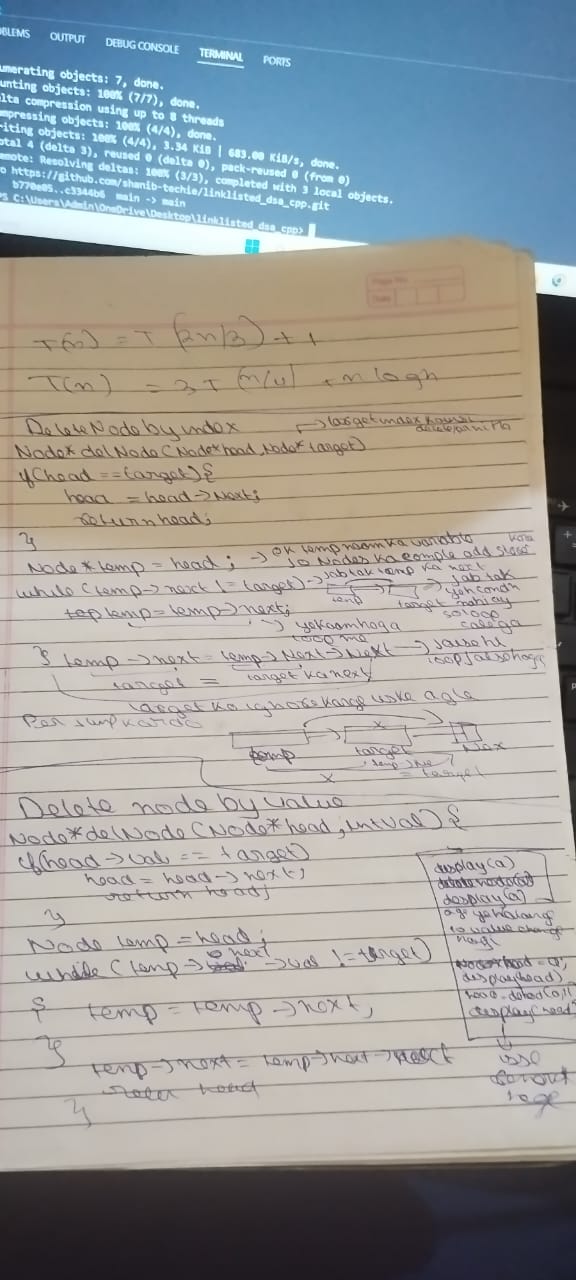 OBLEMS OUTPUT DEBUG CONSOLE TERMINAL PORTS
umerating objects: 7, done.
unting objects: 100% (7/7), done.
lta compression using up to 8 threads
mpressing objects: 100% (4/4), done.
iting objects: 100% (4/4), 3.34 KiB | 683.00 KiB/s, done.
otal 4 (delta 3), reused 0 (delta 0), pack-reused 0 (from 0)
emote: Resolving deltas: 100% (3/3), completed with 3 local objects.
o https://github.com/shanib-techie/linklisted_dsa_cpp.git
b770e05..c3344b6 main -> main
PS C:\Users\Admin\OneDrive\Desktop\linklisted_dsa_cpp>
Page No.
Date
T(n) = T (2n/3) + 1
T(n) = 3T (n/4) + n logn
Delete Node by index → target index
Node* delNode (Node* head, Node* target)
if(head == target) {
head = head → Next;
return head;
}
Node * temp = head; → ek temp naam ka variable
while (temp → next != target) → jab tak temp ka next
temp = temp → next;
→ yeh kaam hoga
loop me
} temp → next = temp → Next → Next
target = target ka next
target ko ignore karke uske agle
per jump kardo
temp target
x = target
Delete node by value
Node* delNode (Node* head, int val) {
if(head → val == target)
head = head → next;
return head;
}
Node temp = head;
while (temp → next → val != target)
{ temp = temp → next;
}
temp → next = temp → next → next
head
}
display(a)
display(a)
value change
display(head)
display(head)